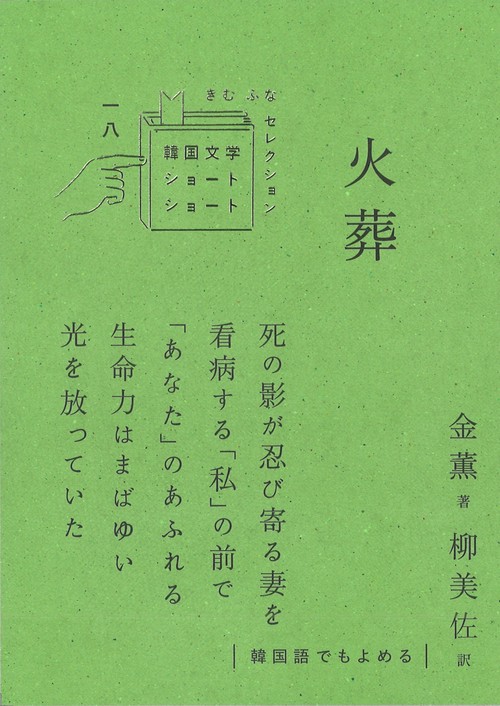 火葬
きむ ふな
セレクション
韓国文学
ショート
ショート
一八
死の影が忍び寄る妻を
看病する「私」の前で
「あなた」のあふれる
生命力はまばゆい
光を放っていた
金薫 著 柳美佐 訳
韓国語でもよめる